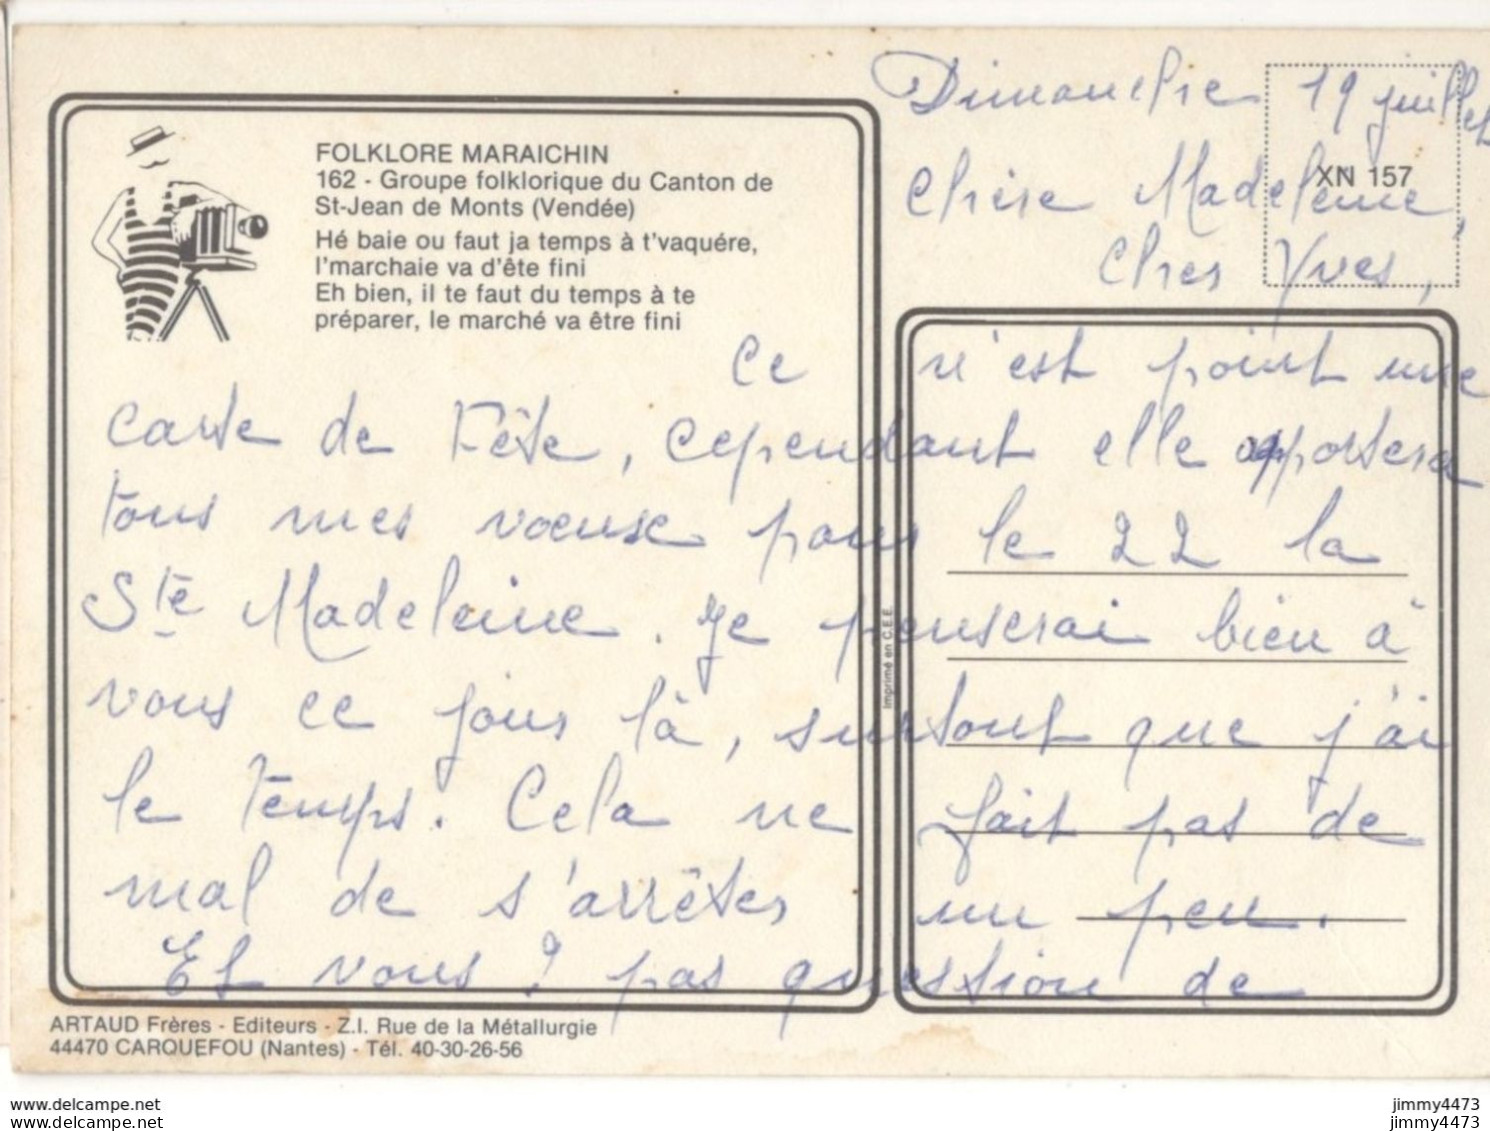 Dimanche 19 juillet
Chère Madeleine,
Cher Yves,
XN 157
FOLKLORE MARAICHIN
162 - Groupe folklorique du Canton de
St-Jean de Monts (Vendée)
Hé baie ou faut ja temps à t'vaquére,
l'marchaie va d'ête fini
Eh bien, il te faut du temps à te
préparer, le marché va être fini
Ce n'est point une
carte de Fête, cependant elle apportera
tous mes voeux pour le 22 la
Ste Madeleine. Je penserai bien à
vous ce jour là, surtout que j'ai
le temps. Cela ne fait pas de
mal de s'arrêter un peu.
Et vous ? pas question de
Imprimé en C.E.E.
ARTAUD Frères - Editeurs - Z.I. Rue de la Métallurgie
44470 CARQUEFOU (Nantes) - Tél. 40-30-26-56
www.delcampe.net
www.delcampe.net
jimmy4473
jimmy4473